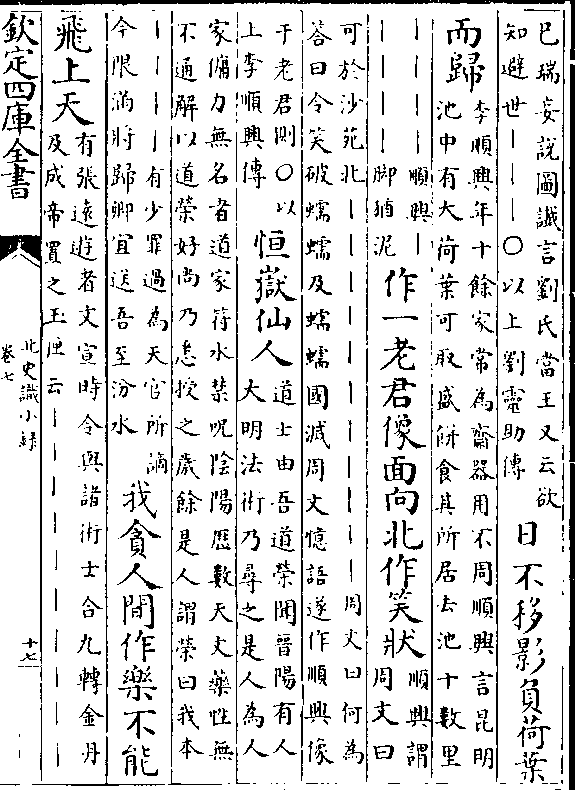 已瑞妄說圖讖言劉氏當王又云欲
知避世｜｜｜○以上劉靈助傳
日不移影負荷葉
而歸
李順興年十餘家常為齋器用不周順興言昆明
池中有大荷葉可取盛餅食其所居去池十數里
｜｜｜｜｜順興｜
｜｜｜｜｜脚猶泥
作一老君像面向北作笑狀
順興謂
周文曰
可於沙苑北｜｜｜｜｜｜｜｜｜｜｜周文曰何為
荅曰令笑破蠕蠕及蠕蠕國滅周文憶語遂作順興像
于老君側○以
上李順興傳
恒嶽仙人
道士由吾道榮聞晉陽有人
大明法術乃尋之是人為人
家傭力無名者道家符水禁呪陰陽歷數天文藥性無
不通解以道榮好尚乃悉授之歲餘是人謂榮曰我本
｜｜｜｜有少罪過為天官所謫
今限滿將歸卿宜送吾至汾水
我貪人間作樂不能
飛上天
有張遠遊者文宣時令與諸術士合九轉金丹
及成帝置之玉匣云｜｜｜｜｜｜｜｜｜｜｜
欽定四庫全書
北史識小錄
卷七
十七